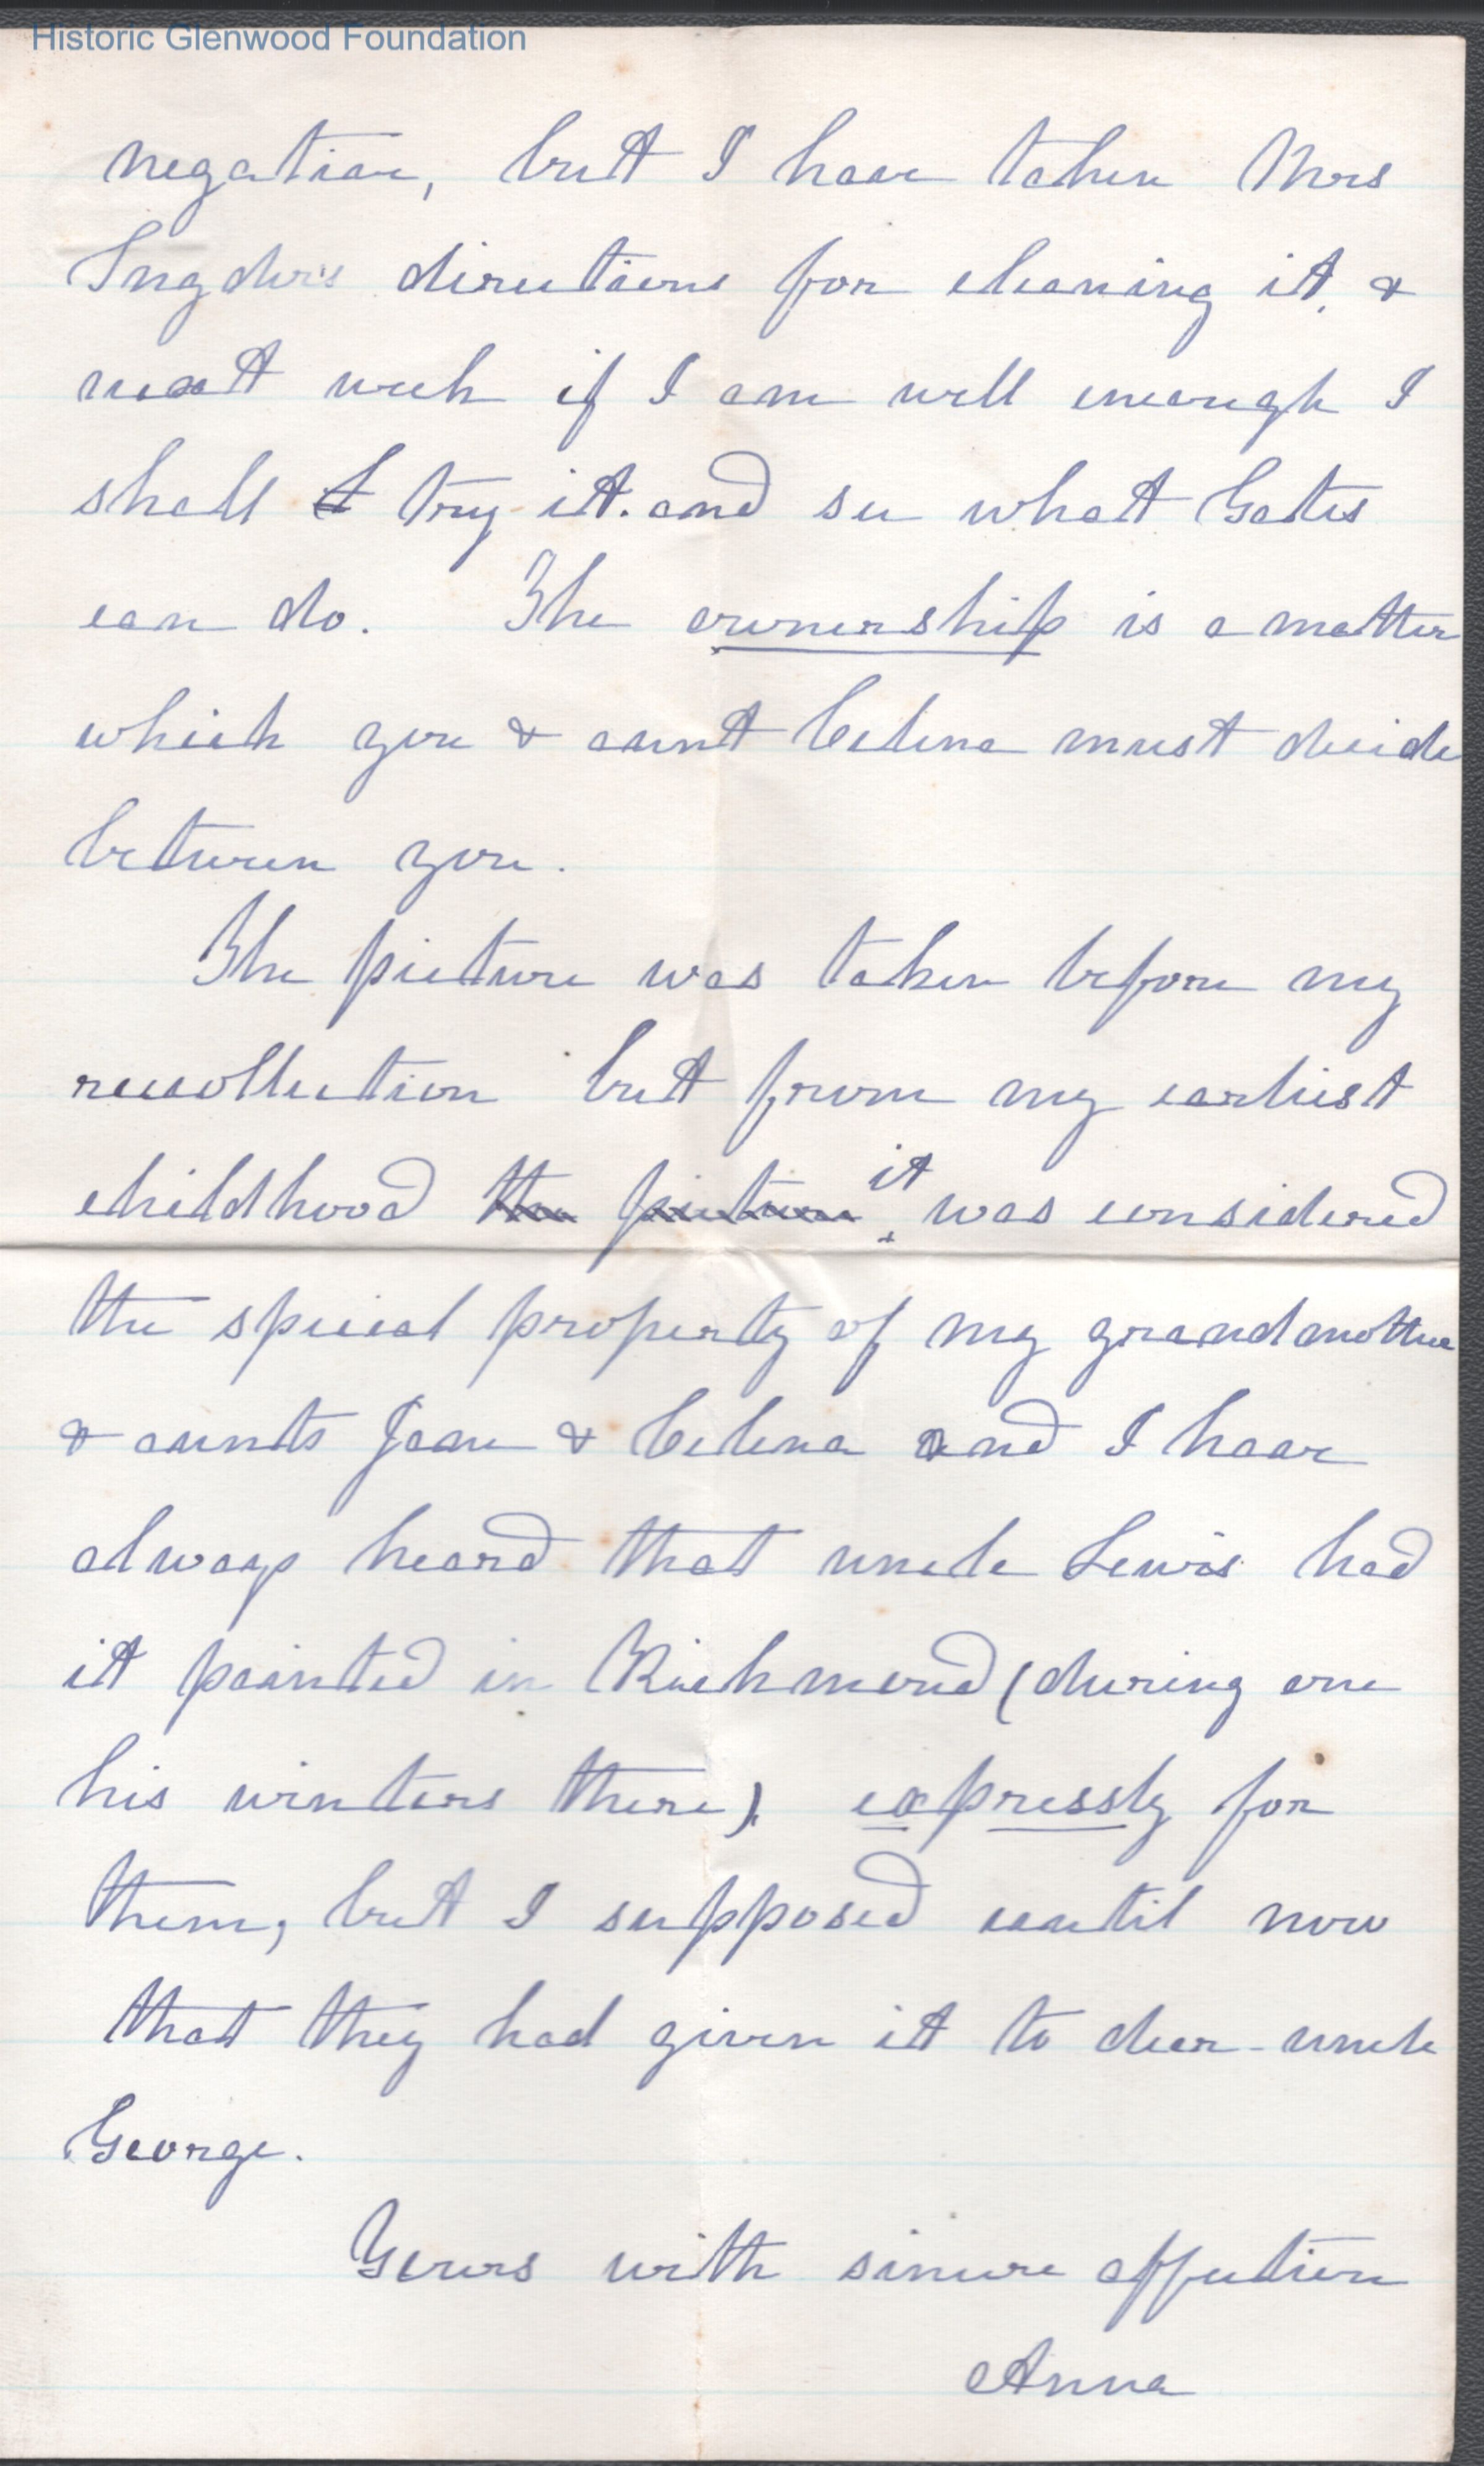 Historic Glenwood Foundation
negative, but I have taken Mrs
directions for cleaning it, &
next week if I am well enough I
shall try it. and see what Gates
can do. The ownership is a matter
which you & aunt Celina must decide
between you.
The picture was taken before my
recollection but from my earliest
childhood the picture it was considered
the special property of my grandmother
& aunts Jean & Celina and I have
always heard that uncle Lewis had
it painted in Richmond (during one
his winters there), expressly for
them, but I supposed until now
that they had given it to dear uncle
George.
Yours with sincere affection
Anna